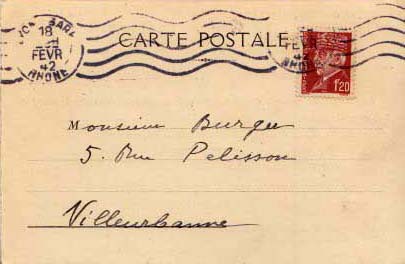 LYON GARE
18
FEVR
42
RHONE
CARTE POSTALE
FEVR
42
RHONE
1f20
Monsieur Burger
5. Rue Pelisson
Villeurbanne